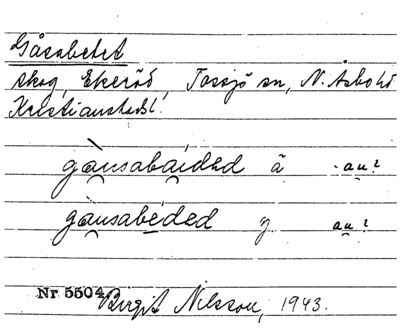 Gåsabetet
skog, Ekeröd, Tossjö sn, N. Åsbo hd
Kristianstads l.
gàu̯sabai̯ded ä -au̯?
gau̯sabeded y au̯?
Nr 5504 Birgit Nilsson, 1943.